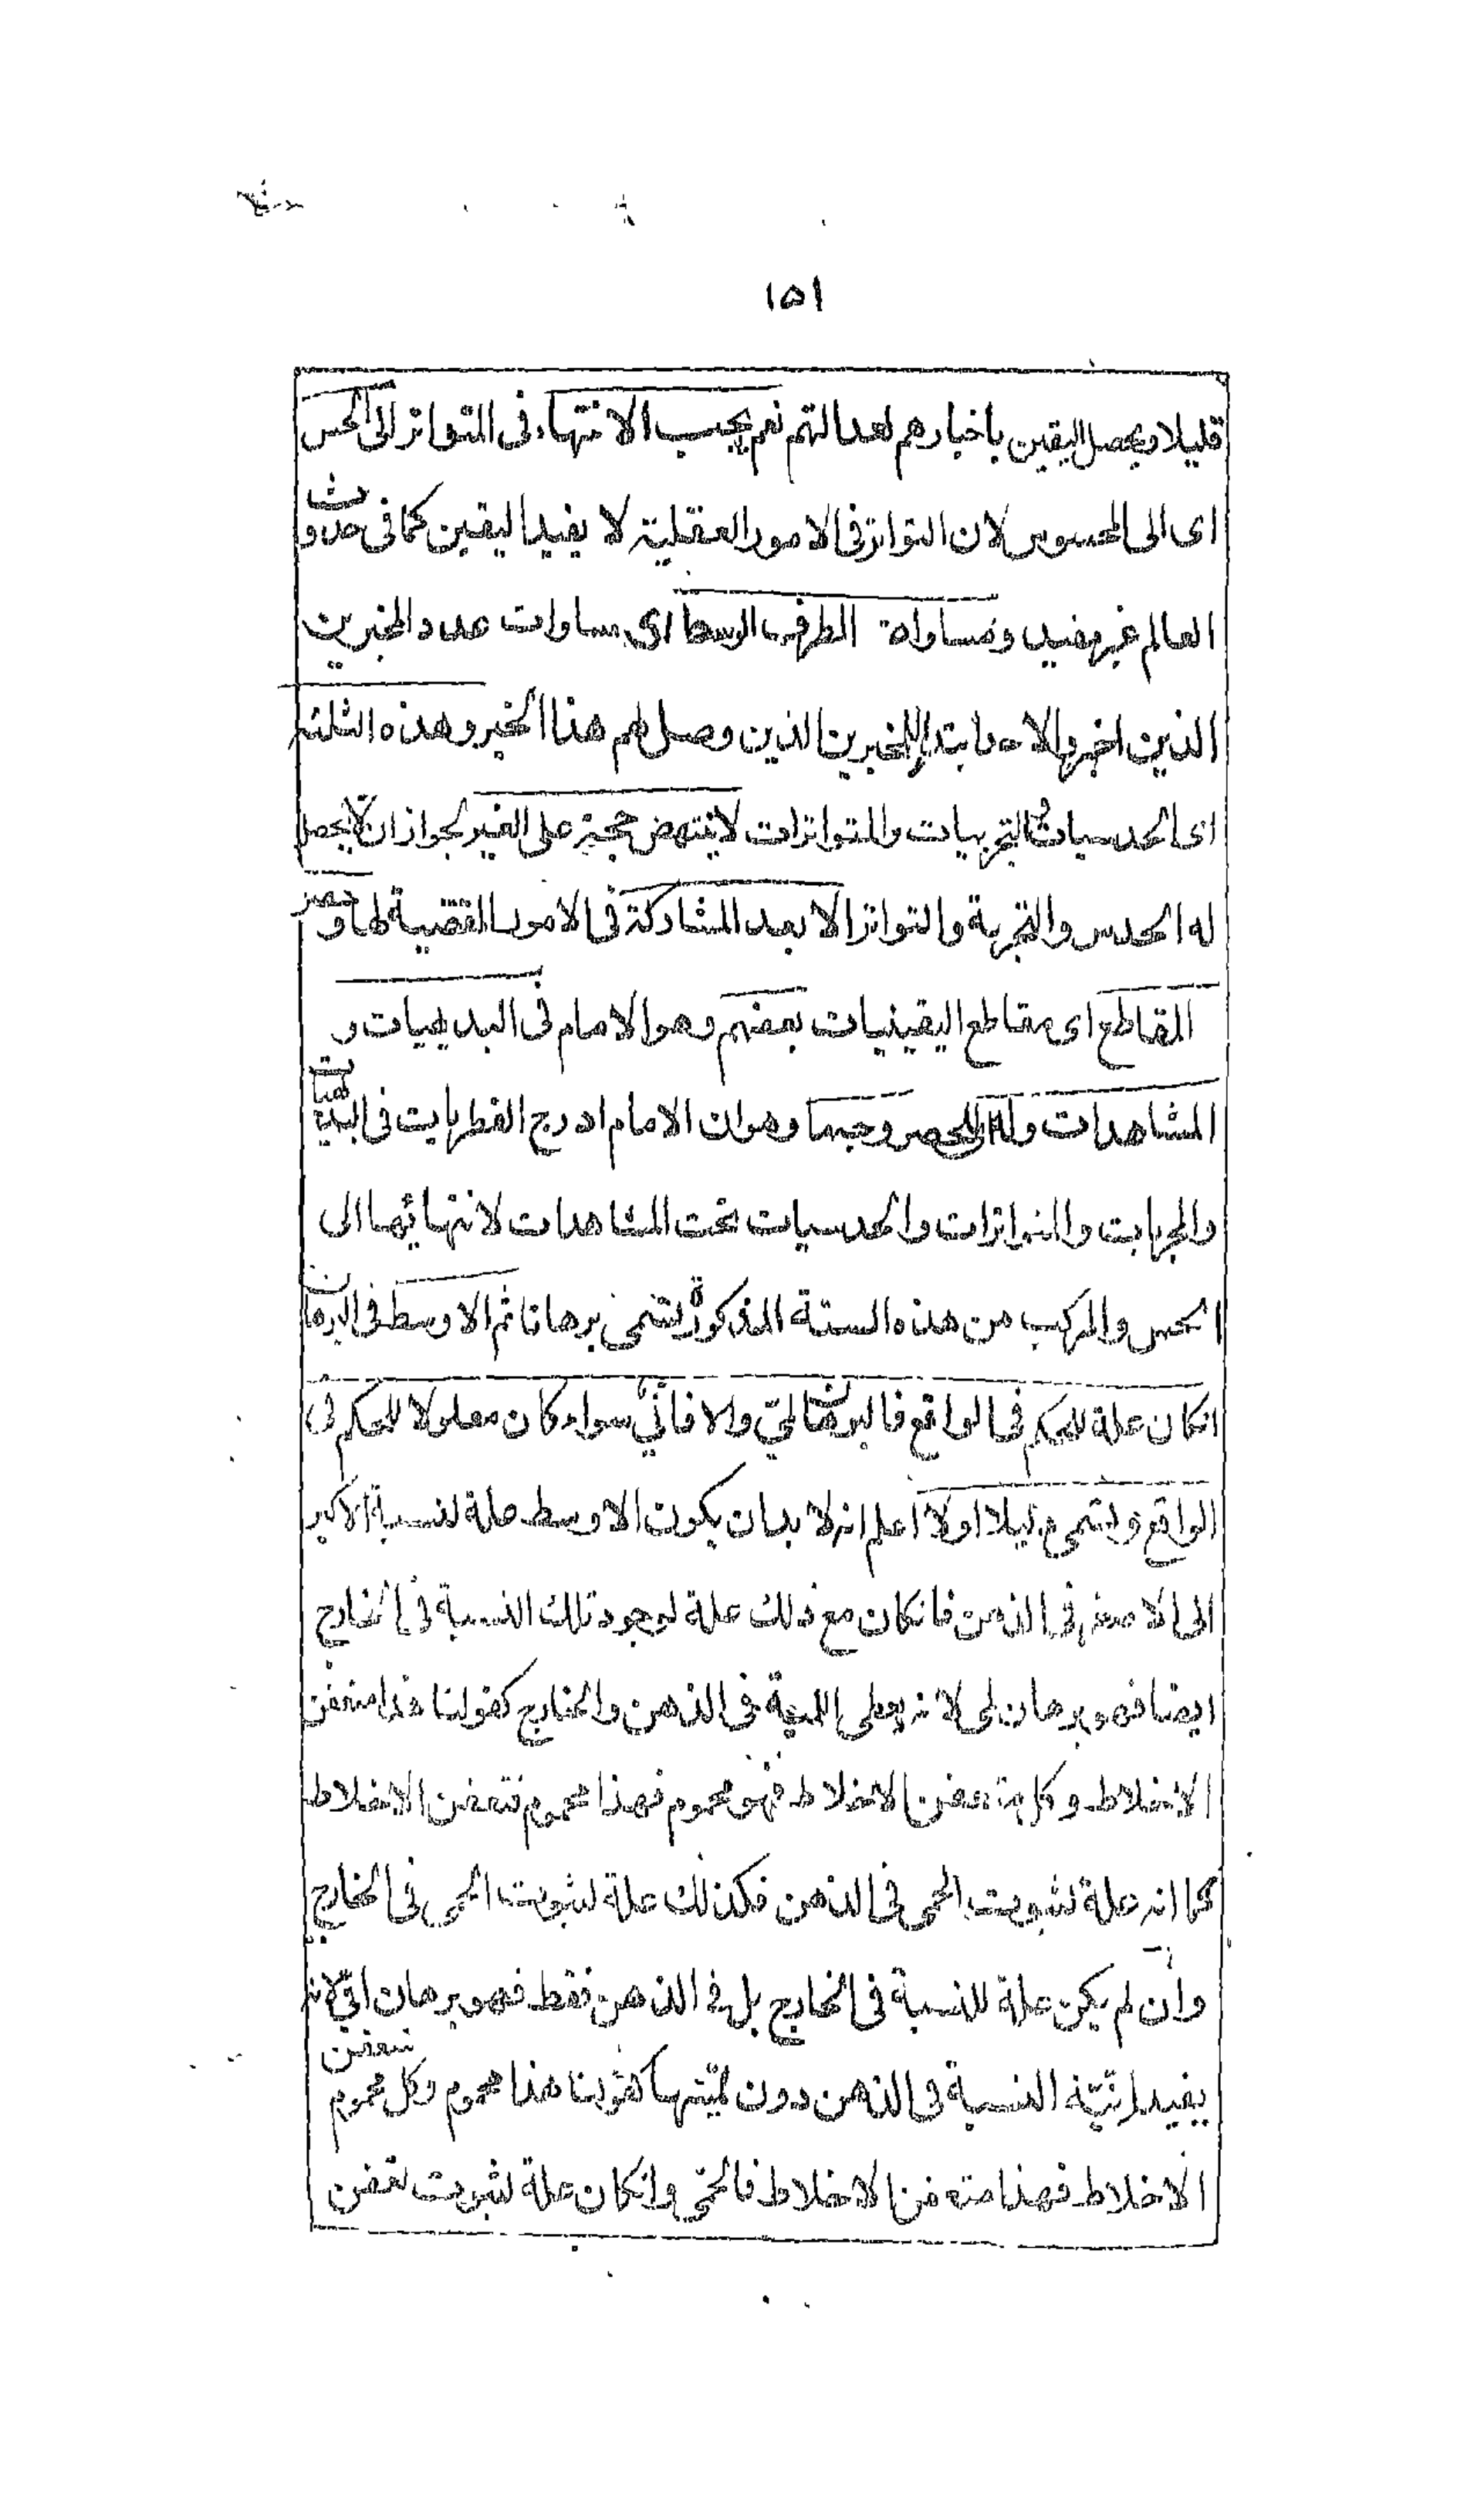 ١٥١
قليلا ويحصل اليقين باخبارهم لعدالتهم نعم يجب الانتهاء فى التواتر الى الحس
اى الى المحسوس لان التواتر فى الامور العقلية لا يفيد اليقين كما فى حدوث
العالم غير مفيد ومساواة الطرفين الوسط اى مساوات عدد المخبرين
الذين اخبروا لا للمخبرين الذين وصل لهم هذا الخبر وهذه الثلثة
اى الحدسيات والتجربيات والمتواترات لا ينتهض حجة على الغير لجواز ان لا يحصل
له الحدس والتجربة والتواتر الا بعد المشاركة فى الامور المقتضية لها و حصر
المقاطع اى مقاطع اليقينيات بعضهم وهو الامام فى البديهيات و
المشاهدات وله اى للحصر وجه ما وهو ان الامام ادرج الفطريات فى البديهيات
والمجربات والمتواترات والحدسيات تحت المشاهدات لانتهائها الى
الحس والمركب من هذه الستة المذكورة يسمى برهانا ثم الاوسط فى البرهان
انكان علة للحكم فى الواقع فالبرهان لمى والا فانى سواء كان معلولا للحكم فى
الواقع ويسمى دليلا اولا اعلم انه لا بد ان يكون الاوسط علة لنسبة الاكبر
الى الاصغر فى الذهن فانكان مع ذلك علة لوجود تلك النسبة فى الخارج
ايضا فهو برهان لمى لانه يعطى اللمية فى الذهن والخارج كقولنا هذا متعفن
الاخلاط وكل متعفن الاخلاط فهو محموم فهذا محموم فتعفن الاخلاط
كما انه علة لثبوت الحمى فى الذهن فكذلك علة لثبوت الحمى فى الخارج
وان لم يكن علة للنسبة فى الخارج بل فى الذهن فقط فهو برهان انى لانه
يفيد انية النسبة فى الذهن دون لميتها كقولنا هذا محموم وكل محموم متعفن
الاخلاط فهذا متعفن الاخلاط فالحمى وانكان علة لثبوت تعفن